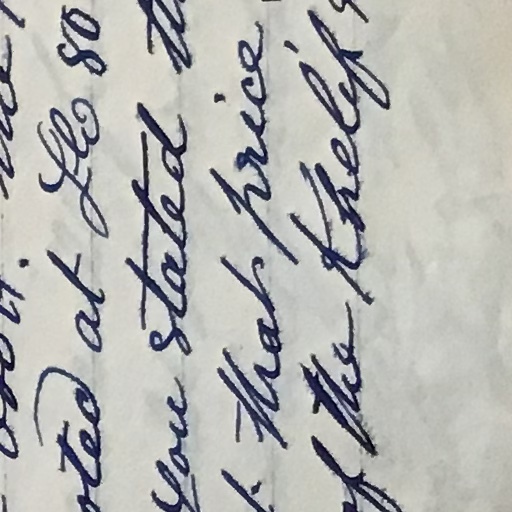 oted at Llo 80
you stated th
that price
of the Khelif &